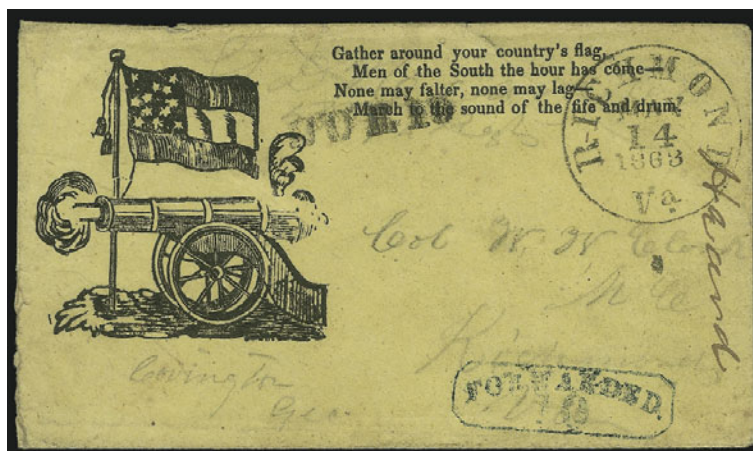 Gather around your country's flag,
Men of the South the hour has come—
None may falter, none may lag—
March to the sound of the fife and drum.
RICHMOND
MAY
14
1863
Va
Col W. W. Clark
M C
Richmond
Covington
Geo
FORWARDED.
10